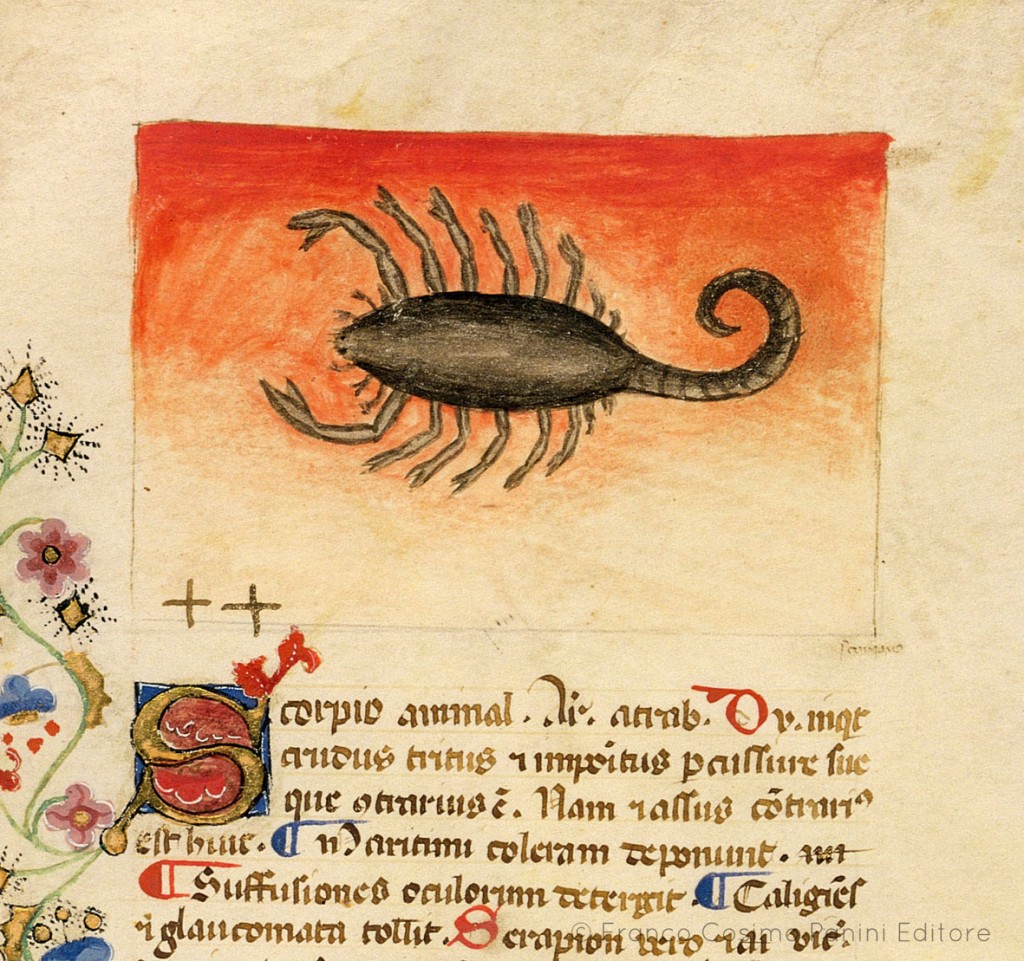 Scorpio animal. Ar. atrab. Dy. inqt
crudus tritus ⁊ impoitus pcussure sue
que otrarius ē. Nam ⁊ assus cōtrariꝰ
est huic. ¶ Maritimi coleram deponunt.
¶ Suffusiones oculorum detergit. ¶ Caligīes
⁊ glaucomata tollit. Serapion vero
© Franco Cosimo Panini Editore